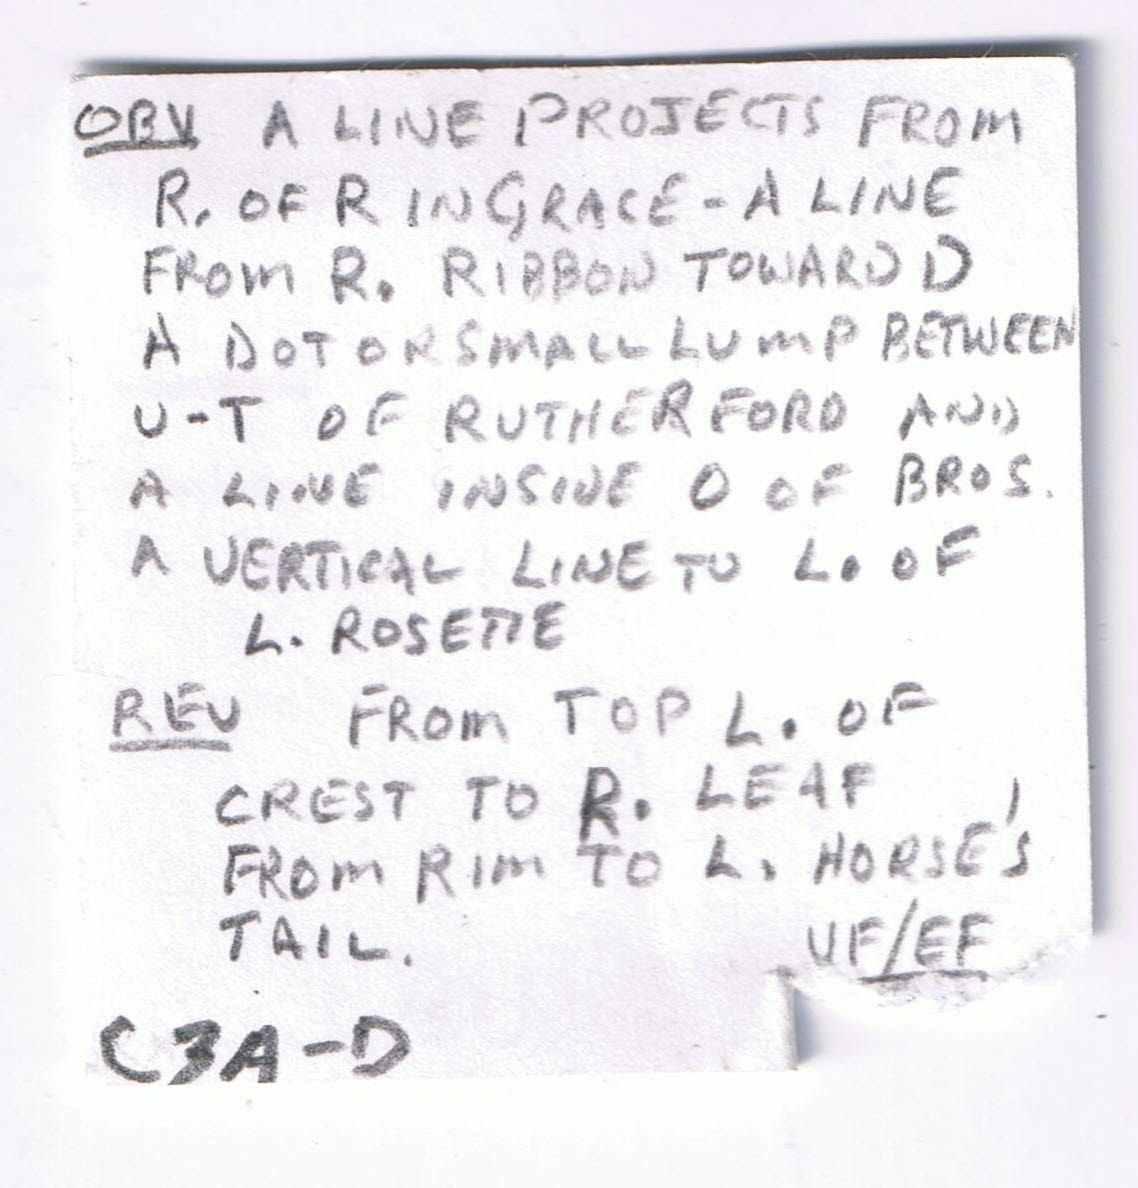 OBV A LINE PROJECTS FROM
R. OF R IN GRACE - A LINE
FROM R. RIBBON TOWARD D
A DOT OR SMALL LUMP BETWEEN
U-T OF RUTHERFORD AND
A LINE INSIDE O OF BROS.
A VERTICAL LINE TO L. OF
L. ROSETTE
REV FROM TOP L. OF
CREST TO R. LEAF
FROM RIM TO L. HORSE'S
TAIL. VF/EF
C3A-D